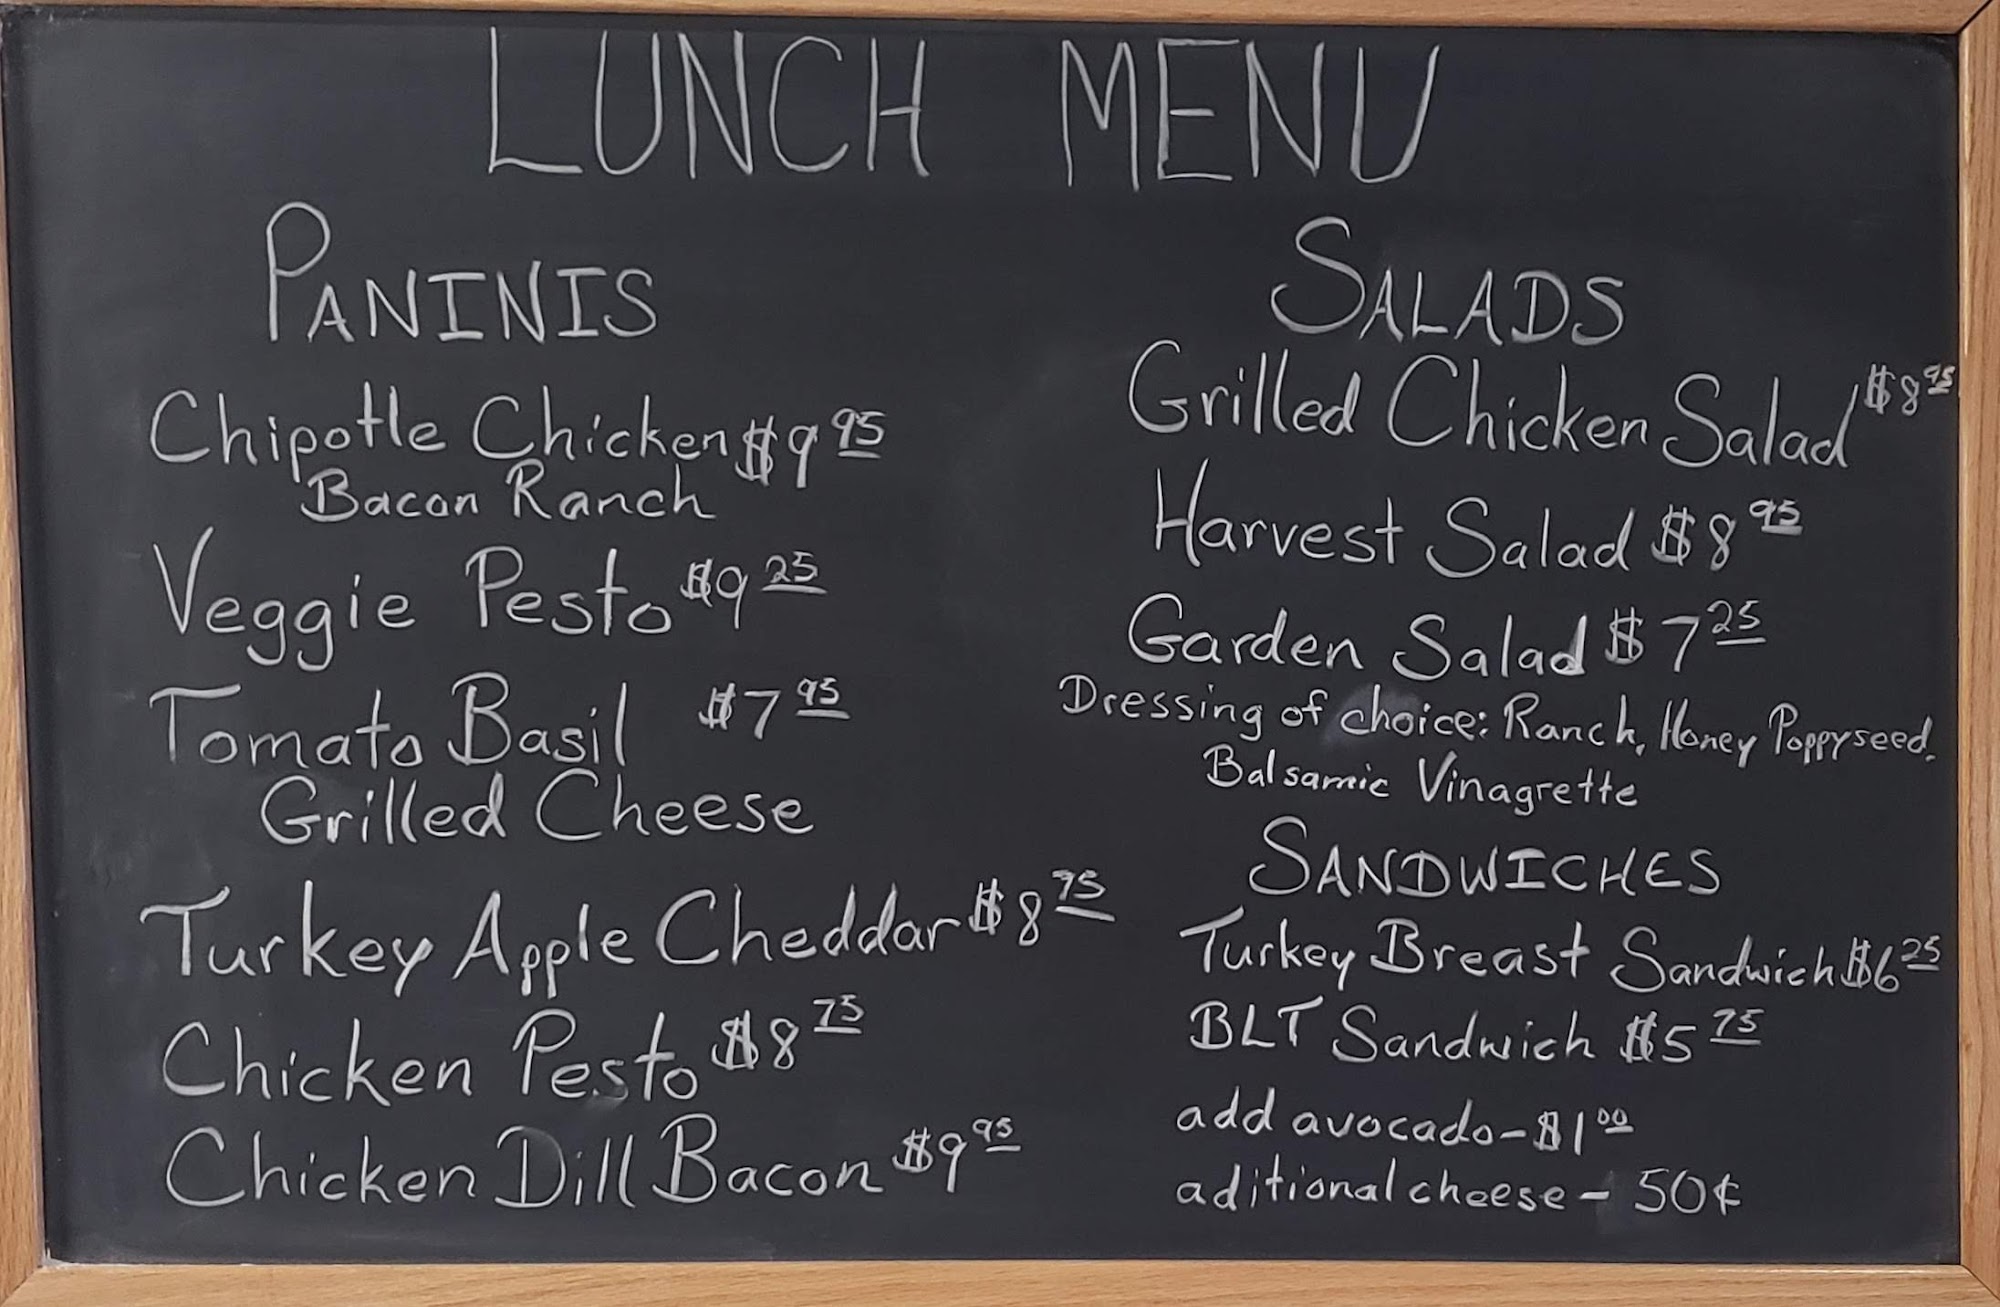 LUNCH MENU
PANINIS
Chipotle Chicken $9 95
Bacon Ranch
Veggie Pesto $9 25
Tomato Basil $7 95
Grilled Cheese
Turkey Apple Cheddar $8 75
Chicken Pesto $8 75
Chicken Dill Bacon $9 95
SALADS
Grilled Chicken Salad $8 95
Harvest Salad $8 95
Garden Salad $7 25
Dressing of choice: Ranch, Honey Poppyseed,
Balsamic Vinagrette
SANDWICHES
Turkey Breast Sandwich $6 25
BLT Sandwich $5 75
add avocado - $1 00
aditional cheese - 50¢